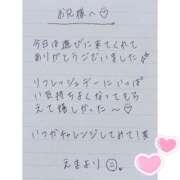 お兄様へ♡
今日は遊びに来てくれて
ありがとうございました
リフレッシュデーにいっぱ
い気持ちよくなってもら
えて嬉しかった〜♡
いつかチャレンジしてみて！笑
えまより